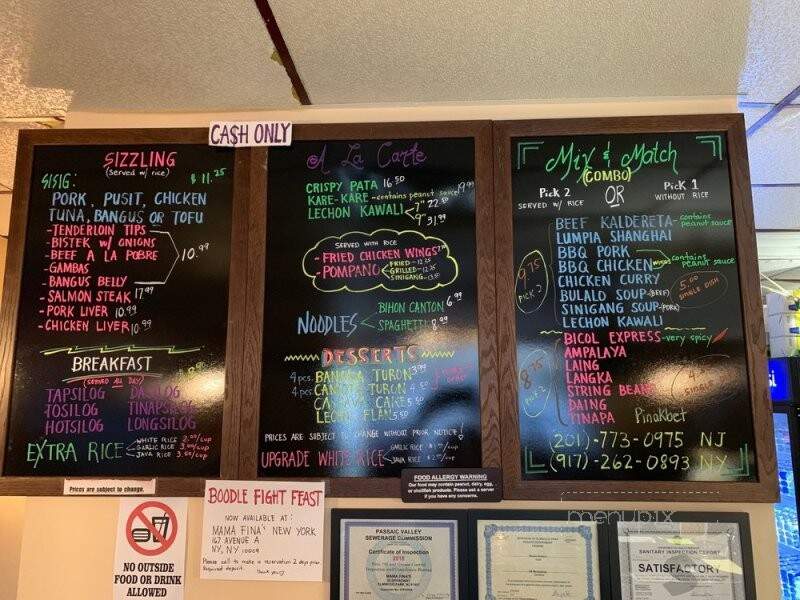 CASH ONLY
SIZZLING
(SERVED W/ RICE)
SISIG: $11.25
PORK, PUSIT, CHICKEN
TUNA, BANGUS OR TOFU
- TENDERLOIN TIPS
- BISTEK W/ ONIONS
- BEEF A LA POBRE
- GAMBAS
- BANGUS BELLY
10.99
- SALMON STEAK 17.99
- PORK LIVER 10.99
- CHICKEN LIVER 10.99
BREAKFAST
(SERVED ALL DAY)
TAPSILOG
TOSILOG TINAPSILOG
HOTSILOG LONGSILOG
EXTRA RICE
WHITE RICE 2.00/CUP
GARLIC RICE 3.00/CUP
JAVA RICE 3.00/CUP
A La Carte
CRISPY PATA 16.50
KARE-KARE - contains peanut sauce
LECHON KAWALI 7" 22.50
9" 31.99
SERVED WITH RICE
- FRIED CHICKEN WINGS
- POMPANO
FRIED - 12.25
GRILLED - 12.25
SINIGANG
NOODLES
BIHON CANTON 6.99
SPAGHETTI 8.99
DESSERTS
4pcs. BANANA TURON 3.99
4pcs. TURON 4.50
CASSAVA CAKE 5.50
LECHE FLAN 5.50
PRICES ARE SUBJECT TO CHANGE WITHOUT PRIOR NOTICE!
UPGRADE WHITE RICE
GARLIC RICE
JAVA RICE
Mix & Match
(COMBO)
Pick 2
SERVED W/ RICE
OR
Pick 1
WITHOUT RICE
BEEF KALDERETA - contains peanut sauce
LUMPIA SHANGHAI
BBQ PORK
BBQ CHICKEN contains peanut sauce
CHICKEN CURRY
BULALO SOUP (BEEF)
SINIGANG SOUP (PORK)
LECHON KAWALI
9.75
PICK 2
5.00
SINGLE DISH
BICOL EXPRESS - very spicy
AMPALAYA
LAING
LANGKA
STRING BEANS
DAING
TINAPA Pinakbet
8.75
PICK 2
(201)-773-0975 NJ
(917)-262-0893 NY
Prices are subject to change.
FOOD ALLERGY WARNING
Our food may contain peanut, dairy, egg,
or shellfish products. Please ask a server
if you have any concerns.
NO OUTSIDE
FOOD OR DRINK
ALLOWED
BOODLE FIGHT FEAST
NOW AVAILABLE AT:
MAMA FINA'S NEW YORK
167 AVENUE A
NY, NY 10009
Please call to make a reservation 2 days prior.
Required deposit. Thank you
PASSAIC VALLEY
SEWERAGE COMMISSION
Certificate of Inspection
2018
MAMA FINA'S
SANITARY INSPECTION REPORT
SATISFACTORY
menupix